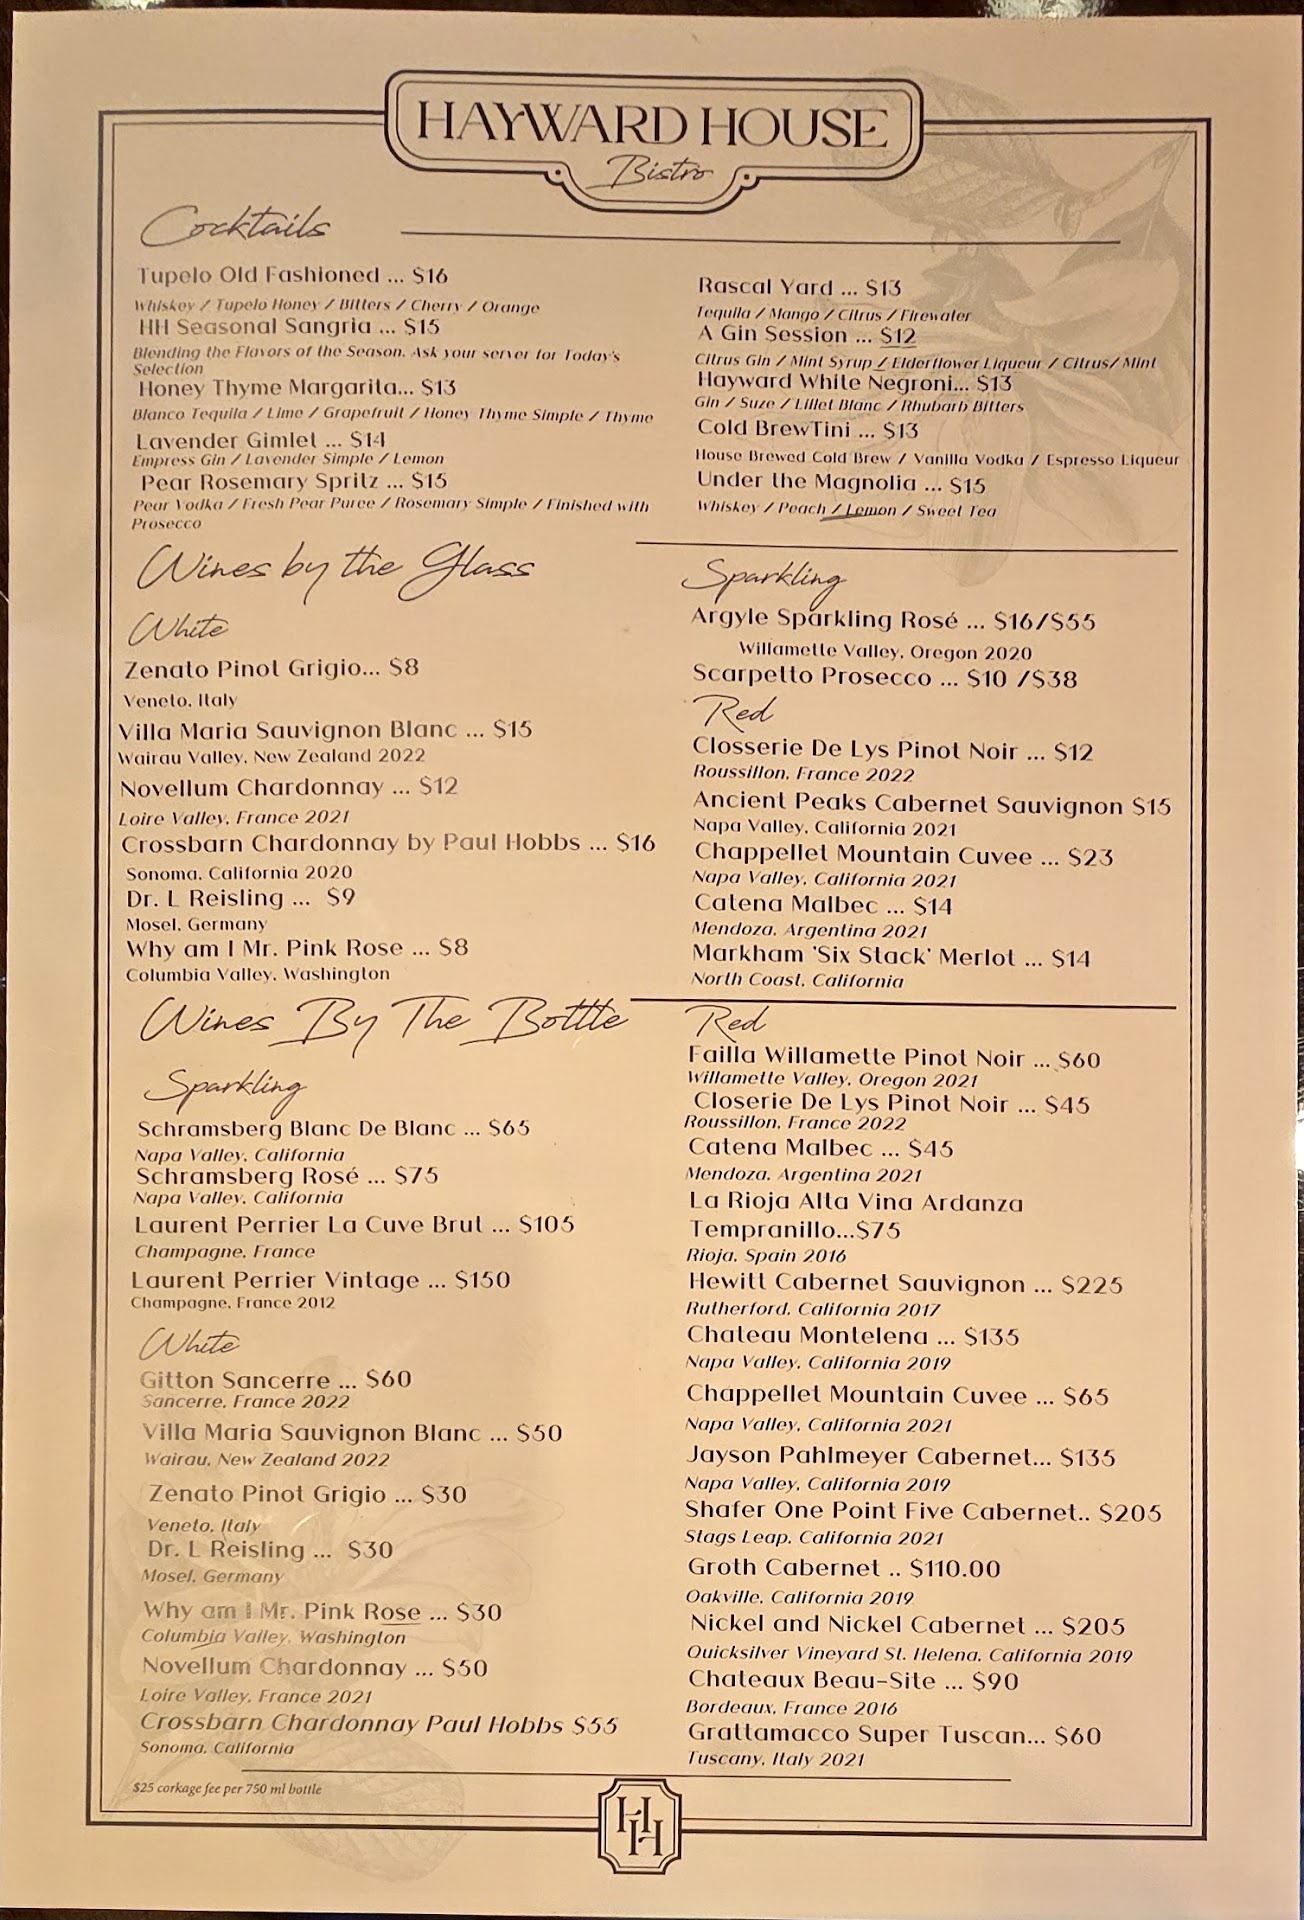 HAYWARD HOUSE
Bistro
Cocktails
Tupelo Old Fashioned ... $16
Whiskey / Tupelo Honey / Bitters / Cherry / Orange
HH Seasonal Sangria ... $15
Blending the Flavors of the Season. Ask your server for Today's
Selection
Honey Thyme Margarita... $13
Blanco Tequila / Lime / Grapefruit / Honey Thyme Simple / Thyme
Lavender Gimlet ... $14
Empress Gin / Lavender Simple / Lemon
Pear Rosemary Spritz ... $15
Pear Vodka / Fresh Pear Puree / Rosemary Simple / Finished with
Prosecco
Rascal Yard ... $13
Tequila / Mango / Citrus / Firewater
A Gin Session ... $12
Citrus Gin / Mint Syrup / Elderflower Liqueur / Citrus/ Mint
Hayward White Negroni... $13
Gin / Suze / Lillet Blanc / Rhubarb Bitters
Cold BrewTini ... $13
House Brewed Cold Brew / Vanilla Vodka / Espresso Liqueur
Under the Magnolia ... $15
Whiskey / Peach / Lemon / Sweet Tea
Wines by the Glass
White
Zenato Pinot Grigio... $8
Veneto, Italy
Villa Maria Sauvignon Blanc ... $15
Wairau Valley, New Zealand 2022
Novellum Chardonnay ... $12
Loire Valley, France 2021
Crossbarn Chardonnay by Paul Hobbs ... $16
Sonoma, California 2020
Dr. L Reisling ... $9
Mosel, Germany
Why am I Mr. Pink Rose ... $8
Columbia Valley, Washington
Sparkling
Argyle Sparkling Rosé ... $16/$55
Willamette Valley, Oregon 2020
Scarpetto Prosecco ... $10 /$38
Red
Closserie De Lys Pinot Noir ... $12
Roussillon, France 2022
Ancient Peaks Cabernet Sauvignon $15
Napa Valley, California 2021
Chappellet Mountain Cuvee ... $23
Napa Valley, California 2021
Catena Malbec ... $14
Mendoza, Argentina 2021
Markham 'Six Stack' Merlot ... $14
North Coast, California
Wines By The Bottle
Sparkling
Schramsberg Blanc De Blanc ... $65
Napa Valley, California
Schramsberg Rosé ... $75
Napa Valley, California
Laurent Perrier La Cuve Brut ... $105
Champagne, France
Laurent Perrier Vintage ... $150
Champagne, France 2012
White
Gitton Sancerre ... $60
Sancerre, France 2022
Villa Maria Sauvignon Blanc ... $50
Wairau, New Zealand 2022
Zenato Pinot Grigio ... $30
Veneto, Italy
Dr. L Reisling ... $30
Mosel, Germany
Why am I Mr. Pink Rose ... $30
Columbia Valley, Washington
Novellum Chardonnay ... $50
Loire Valley, France 2021
Crossbarn Chardonnay Paul Hobbs $55
Sonoma, California
Red
Failla Willamette Pinot Noir ... $60
Willamette Valley, Oregon 2021
Closerie De Lys Pinot Noir ... $45
Roussillon, France 2022
Catena Malbec ... $45
Mendoza, Argentina 2021
La Rioja Alta Vina Ardanza
Tempranillo...$75
Rioja, Spain 2016
Hewitt Cabernet Sauvignon ... $225
Rutherford, California 2017
Chateau Montelena ... $135
Napa Valley, California 2019
Chappellet Mountain Cuvee ... $65
Napa Valley, California 2021
Jayson Pahlmeyer Cabernet... $135
Napa Valley, California 2019
Shafer One Point Five Cabernet.. $205
Stags Leap, California 2021
Groth Cabernet .. $110.00
Oakville, California 2019
Nickel and Nickel Cabernet ... $205
Quicksilver Vineyard St. Helena, California 2019
Chateaux Beau-Site ... $90
Bordeaux, France 2016
Grattamacco Super Tuscan... $60
Tuscany, Italy 2021
$25 corkage fee per 750 ml bottle
HHH